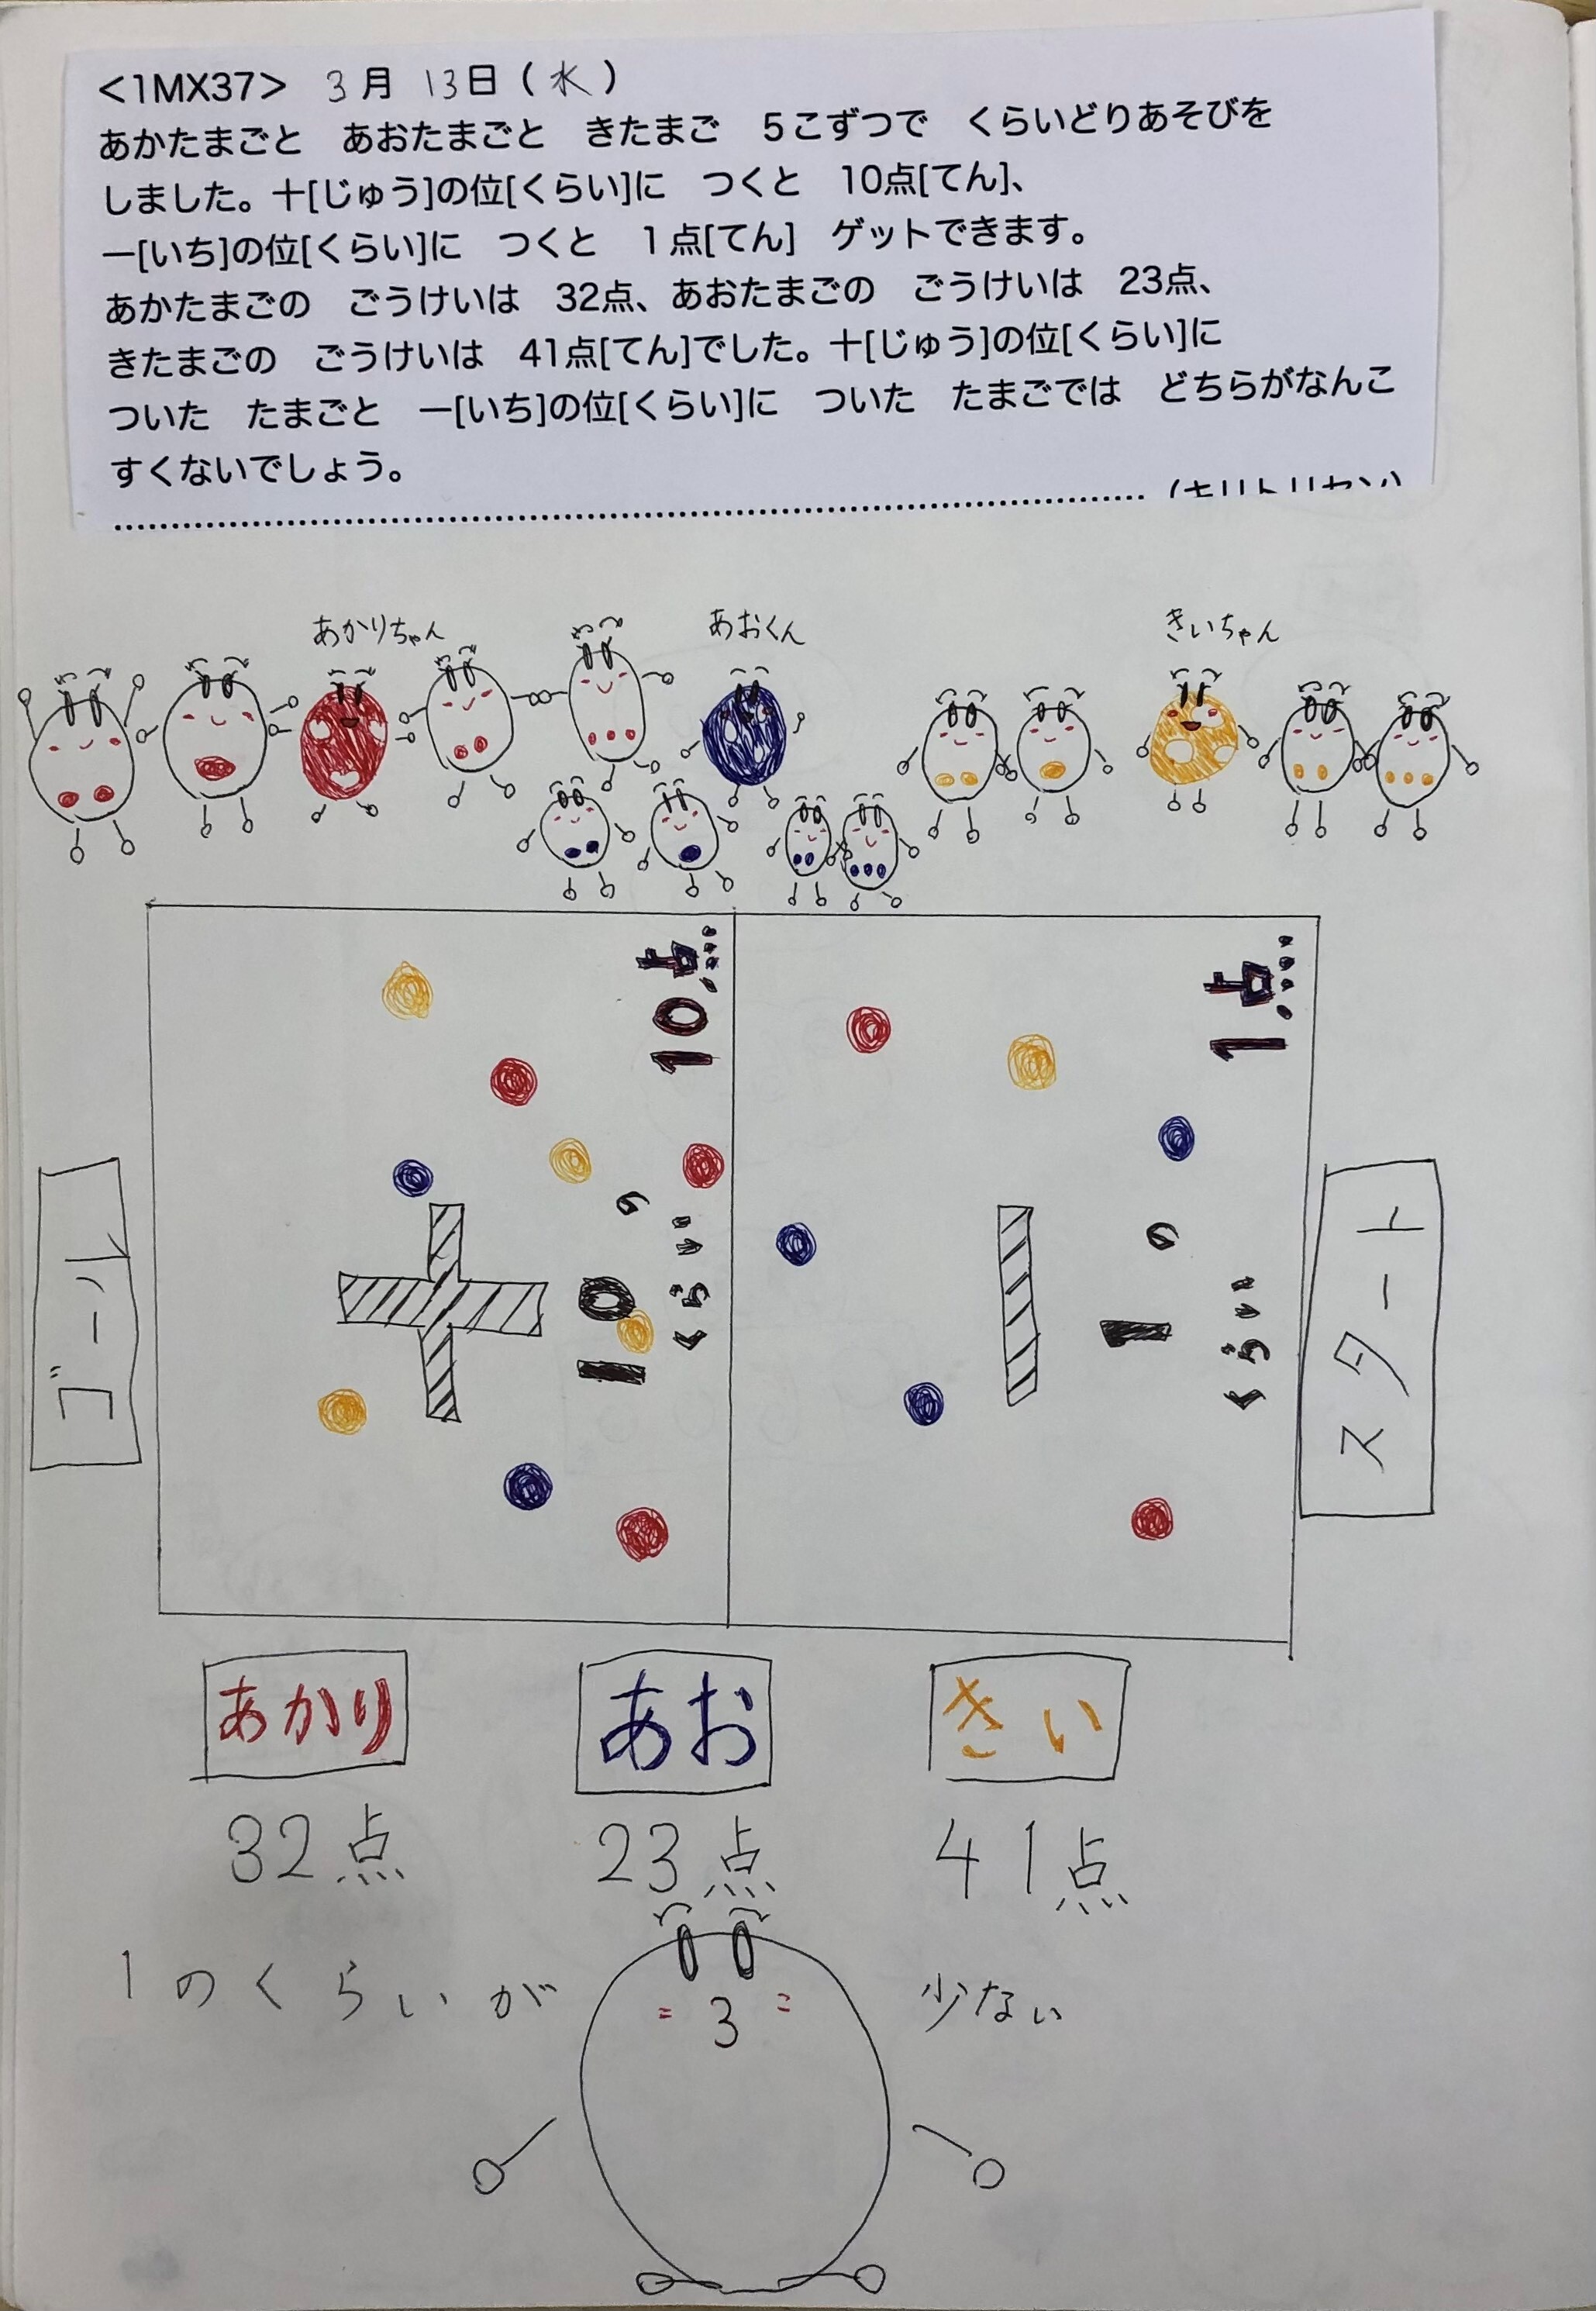 <1MX37> 3月 13日(水)
あかたまごと あおたまごと きたまご 5こずつで くらいどりあそびを
しました。十[じゅう]の位[くらい]に つくと 10点[てん]、
一[いち]の位[くらい]に つくと 1点[てん] ゲットできます。
あかたまごの ごうけいは 32点、あおたまごの ごうけいは 23点、
きたまごの ごうけいは 41点[てん]でした。十[じゅう]の位[くらい]に
ついた たまごと 一[いち]の位[くらい]に ついた たまごでは どちらがなんこ
すくないでしょう。
(キリトリセン)
あかりちゃん あおくん きいちゃん
10点 1点
ゴール 十 10のくらい 一 1のくらい スタート
あかり あお きい
32点 23点 41点
1のくらいが 3 少ない